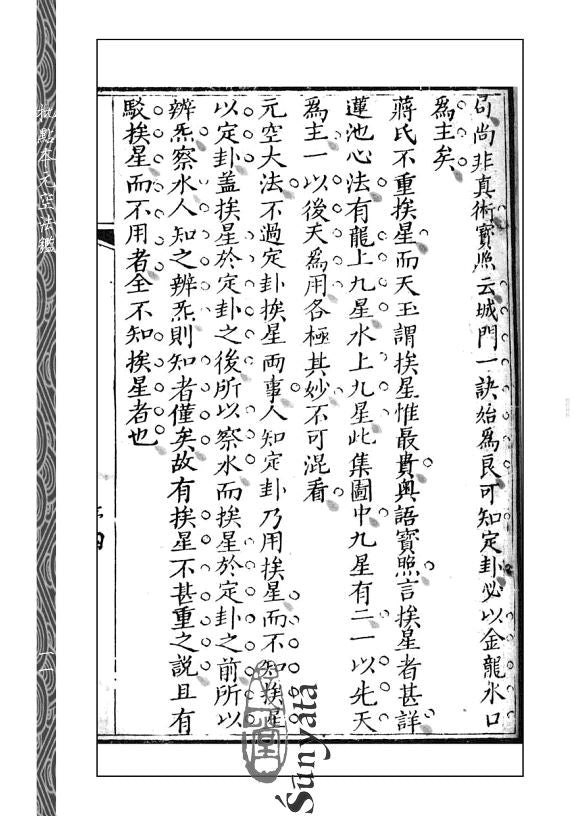 句尚非真術寶照云城門一訣始為良可知定卦必以金龍水口
為主矣
蔣氏不重挨星而天玉謂挨星惟最貴奧語寶照言挨星者甚詳
蓮池心法有龍上九星水上九星此集圖中九星有二一以先天
為主一以後天為用各極其妙不可混看
元空大法不過定卦挨星兩事人知定卦乃用挨星而不知挨星
以定卦蓋挨星於定卦之後所以察水而挨星於定卦之前所以
辨炁察水人知之辨炁則知者僅矣故有挨星不甚重之說且有
駁挨星而不用者全不知挨星者也
批點本元空法鑑
一一
一堂
Śūnyatā